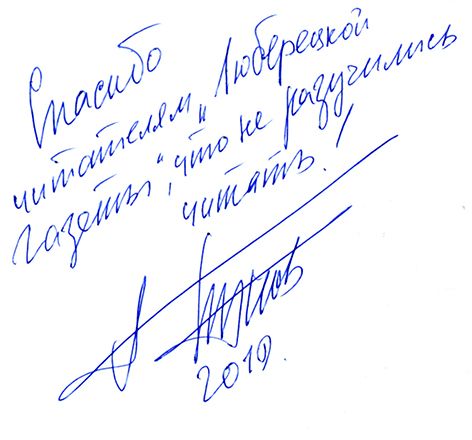 Спасибо
читателям „Люберецкой
газеты“, что не разучились
читать!
2010.